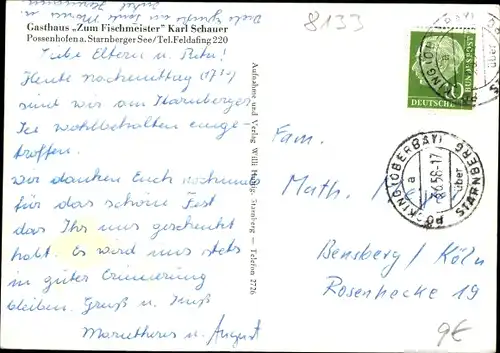 8133
Gasthaus „Zum Fischmeister" Karl Schauer
Possenhofen a. Starnberger See / Tel. Feldafing 220
Liebe Eltern u. !
Heute nachmittag (17h)
sind wir am Starnberger
See wohlbehalten einge-
troffen.
Wir danken Euch nochmals
für das schöne Fest
das Ihr uns geschenkt
habt. Es wird uns stets
in guter Erinnerung
bleiben. Gruß u. Kuß
Marietheres u. August
Viele Grüße an
Aufnahme und Verlag Willi Starnberg — Telefon 2726
DEUTSCHE BUNDESPOST
10
PÖCKING (OBERBAY)
über
STARNBERG
a
.6.56-17
Fam.
Math.
Bensberg / Köln
Rosenhecke 19
9€